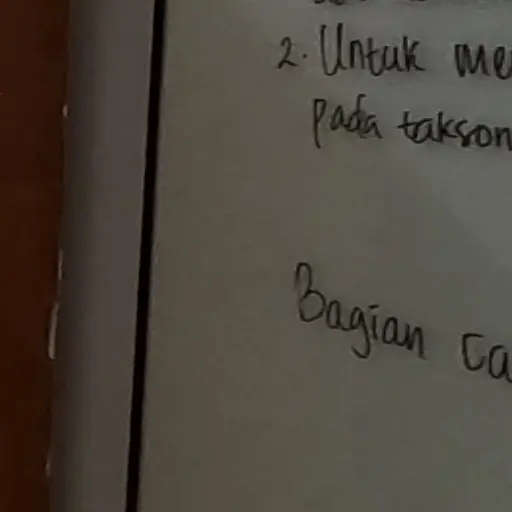 2. Untuk me
pada takson
Bagian ca